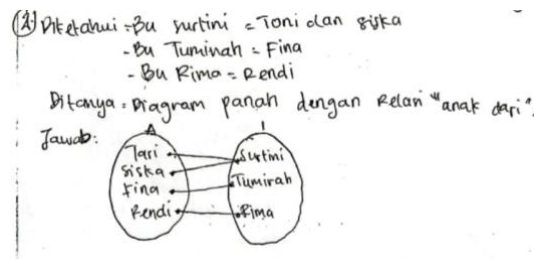 2. Diketahui : -Bu Surtini = Toni dan Siska
- Bu Tuminah = Fina
- Bu Rima = Rendi
Ditanya = Diagram panah dengan Relasi "anak dari".
Jawab:
A
Tari Surtini
Siska Tumirah
Fina Rima
Rendi